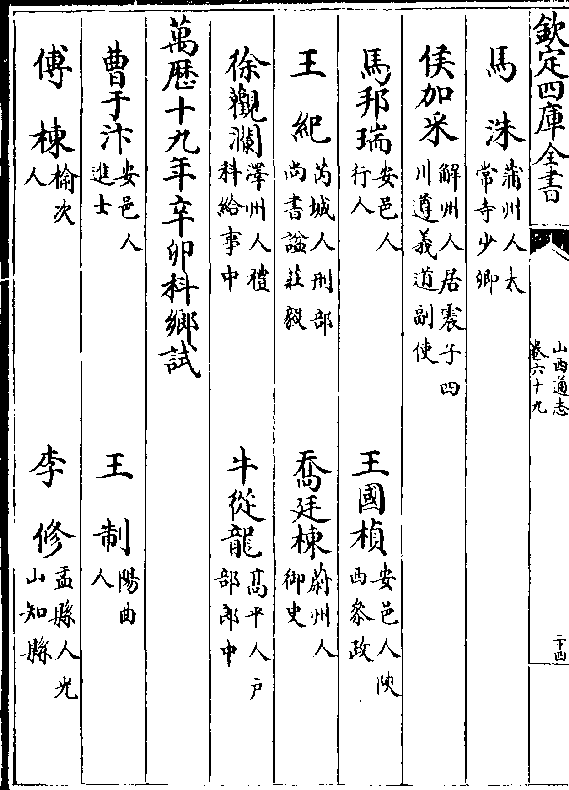 欽定四庫全書
山西通志
卷六十九
二十四
馬洙 蒲州人太常寺少卿
侯加采 解州人居震子四川遵義道副使
馬邦瑞 安邑人行人
王國楨 安邑人陝西叅政
王紀 芮城人刑部尚書諡莊毅
喬廷棟 蔚州人御史
徐觀瀾 澤州人禮科給事中
牛從龍 髙平人户部郎中
萬歴十九年辛卯科鄉試
曹于汴 安邑人進士
王制 陽曲人
傅棟 榆次人
李修 盂縣人光山知縣